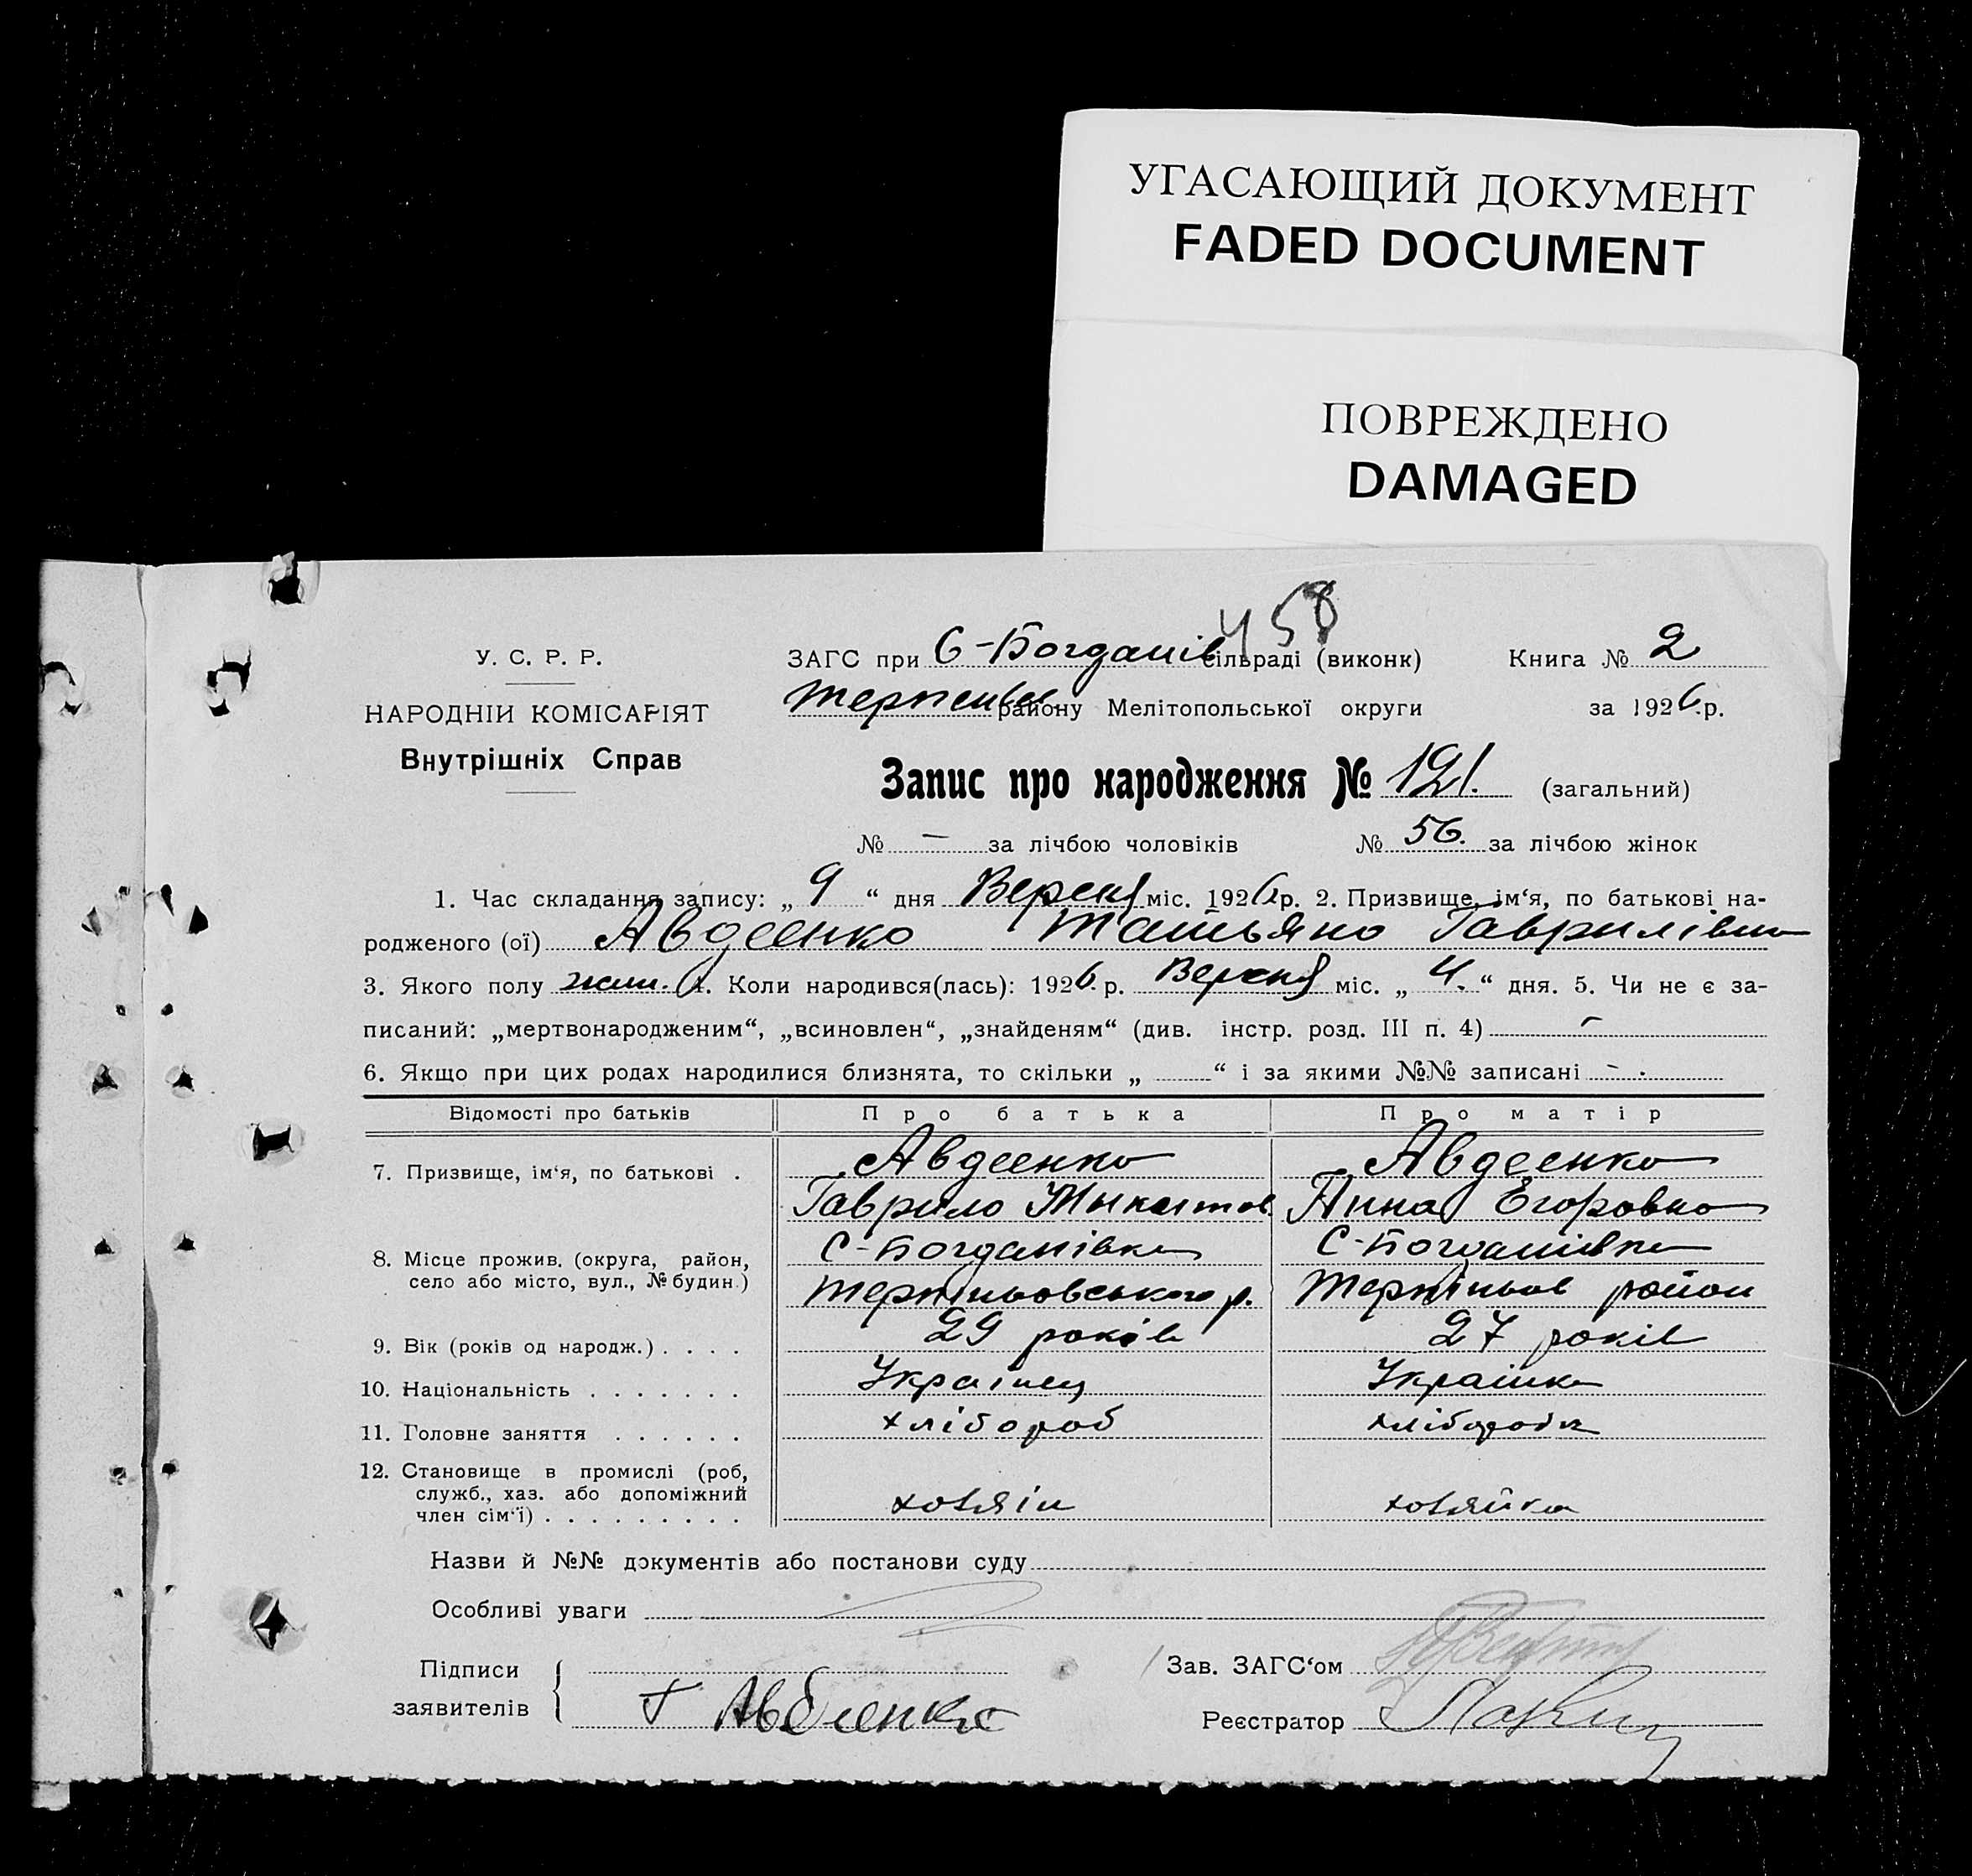 УГАСАЮЩИЙ ДОКУМЕНТ
FADED DOCUMENT
ПОВРЕЖДЕНО
DAMAGED
458
У. С. Р. Р.
НАРОДНІЙ КОМІСАРІЯТ
Внутрішніх Справ
ЗАГС при С-Богданів сільраді (виконк) Книга № 2
району Мелітопольської округи за 1926 р.
Запис про народження № 121. (загальний)
№ — за лічбою чоловіків № 56. за лічбою жінок
1. Час складання запису: „ 9 “ дня Вересня міс. 1926 р. 2. Призвище, ім‘я, по батькові на-
родженого (ої) Авдеенко Татьяна Гаврилівна
3. Якого полу жин. 4. Коли народився(лась): 1926 р. Вересня міс. „ 4. “ дня. 5. Чи не є за-
писаний: „мертвонародженим“, „всиновлен“, „знайденям“ (див. інстр. розд. III п. 4) -
6. Якщо при цих родах народилися близнята, то скільки „ “ і за якими №№ записані - .
Відомості про батьків Про батька Про матір
7. Призвище, ім‘я, по батькові . Авдеенко Авдеенко
Гаврило Микитов. Анна Егоровна
8. Місце прожив. (округа, район, село або місто, вул., № будин.) С-Богданівка С-Богданівка
Терпіньовського р. Терпіньов район
9. Вік (років од народж.) . . . . 29 років 27 років
10. Національність . . . . . . . Українец Українка
11. Головне заняття . . . . . . хлібороб хліборобка
12. Становище в промислі (роб,
служб., хаз. або допоміжний
член сім‘ї) . . . . . . . . . хозяін хозяйка
Назви й №№ документів або постанови суду
Особливі уваги
Підписи
заявителів Г Авдеенко
Зав. ЗАГС‘ом
Реєстратор